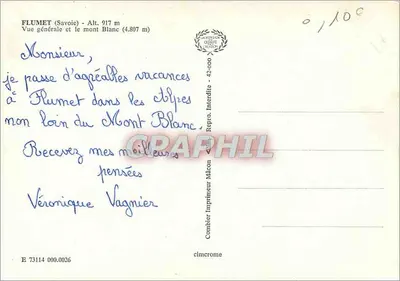 FLUMET (Savoie) - Alt. 917 m
Vue générale et le mont Blanc (4.807 m)
0,10€
Monsieur,
je passe d'agréables vacances
à Flumet dans les Alpes
non loin du Mont Blanc.
Recevez mes meilleures
pensées
Véronique Vagnier
CPAPHIL.COM
Combier Imprimeur Mâcon
Repro. Interdite - 42-000
cimcrome
E 73114 000.0026